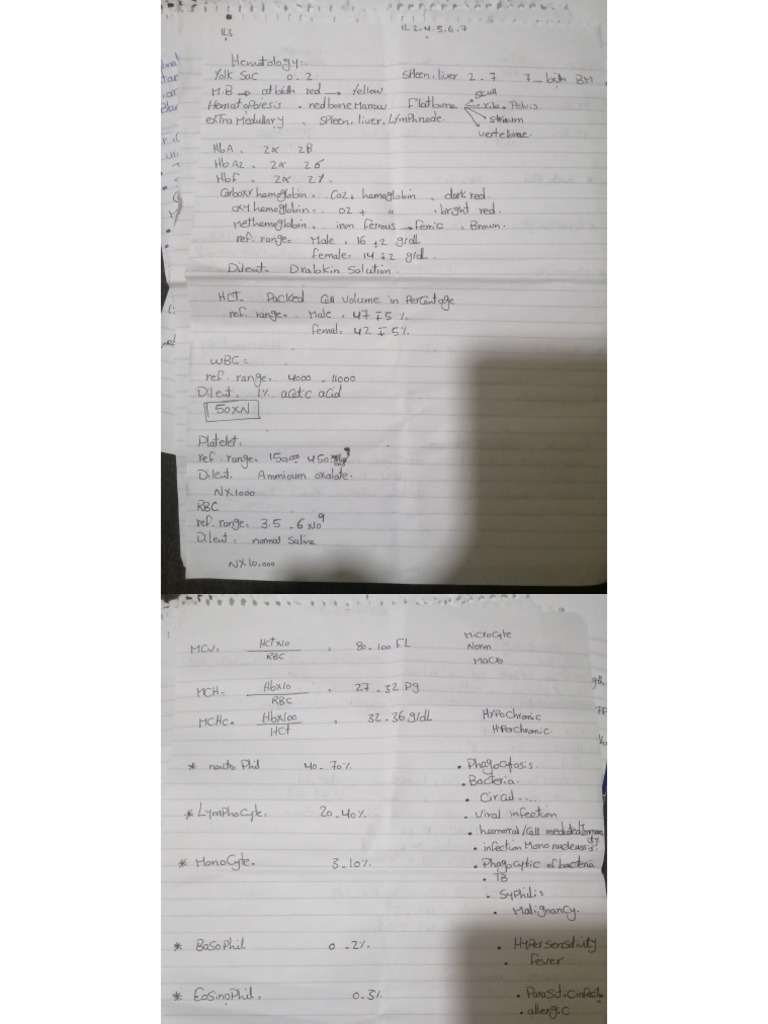 IL3
IL 2.4.5.6.7
Hematology:.
Yolk Sac 0-2 Spleen, liver 2-7 7-birth BM
M.B → at birth red → Yellow
Hematoporesis . red bone Marrow Flat bone
scull
ribs. Pelvis
strnum
vertebrae.
extra Medullary . spleen, liver, Lymphnode.
HbA. 2α 2B
HbA2. 2α 2δ
HbF. 2α 2γ.
Carboxy hemoglobin. Co2+ hemoglobin . dark red.
oxy hemoglobin:. O2 + " . bright red.
methemoglobin. iron ferrous → ferric . Brown.
ref. range= Male . 16 ±2 g/dl
female= 14 ±2 g/dl.
Dilent- Drabkin Solution.
HCT- Packed Cell volume in Percentage
ref. range= Male . 47 ∓5 %
femal. 42 ∓5%.
WBC:
ref. range. 4000 - 11000
Dilent. 1% acetic acid
50XN
Platelet.
ref range.
Dilent. Ammioum oxalate.
NX1000
RBC
ref. range. 3.5 -6 x10⁹
Dilent. normal Saline
NX10.000
MCV: HCT x10 . 80-100 FL
RBC
Microcyte
Norm
Macro
MCH= Hbx10 . 27-32 Pg
RBC
MCHC. Hbx100 . 32-36 g/dL
HCt
Hypochromic
Hperchromic.
* neuto Phil 40-70% • Phagocytosis.
• Bacteria.
• Circul....
* Lymphocyte. 20-40% • Viral infection
• humoral/Cell mediated
• infection Mono nucleosis
* Monocyte. 3-10% • Phagocytic of bacteria
• TB
• Syphilis
• Malignancy.
* Basophil 0-2% • Hypersensitivity
• fever
* Eosinophil. 0.3% • Parasitic infection
• allergic